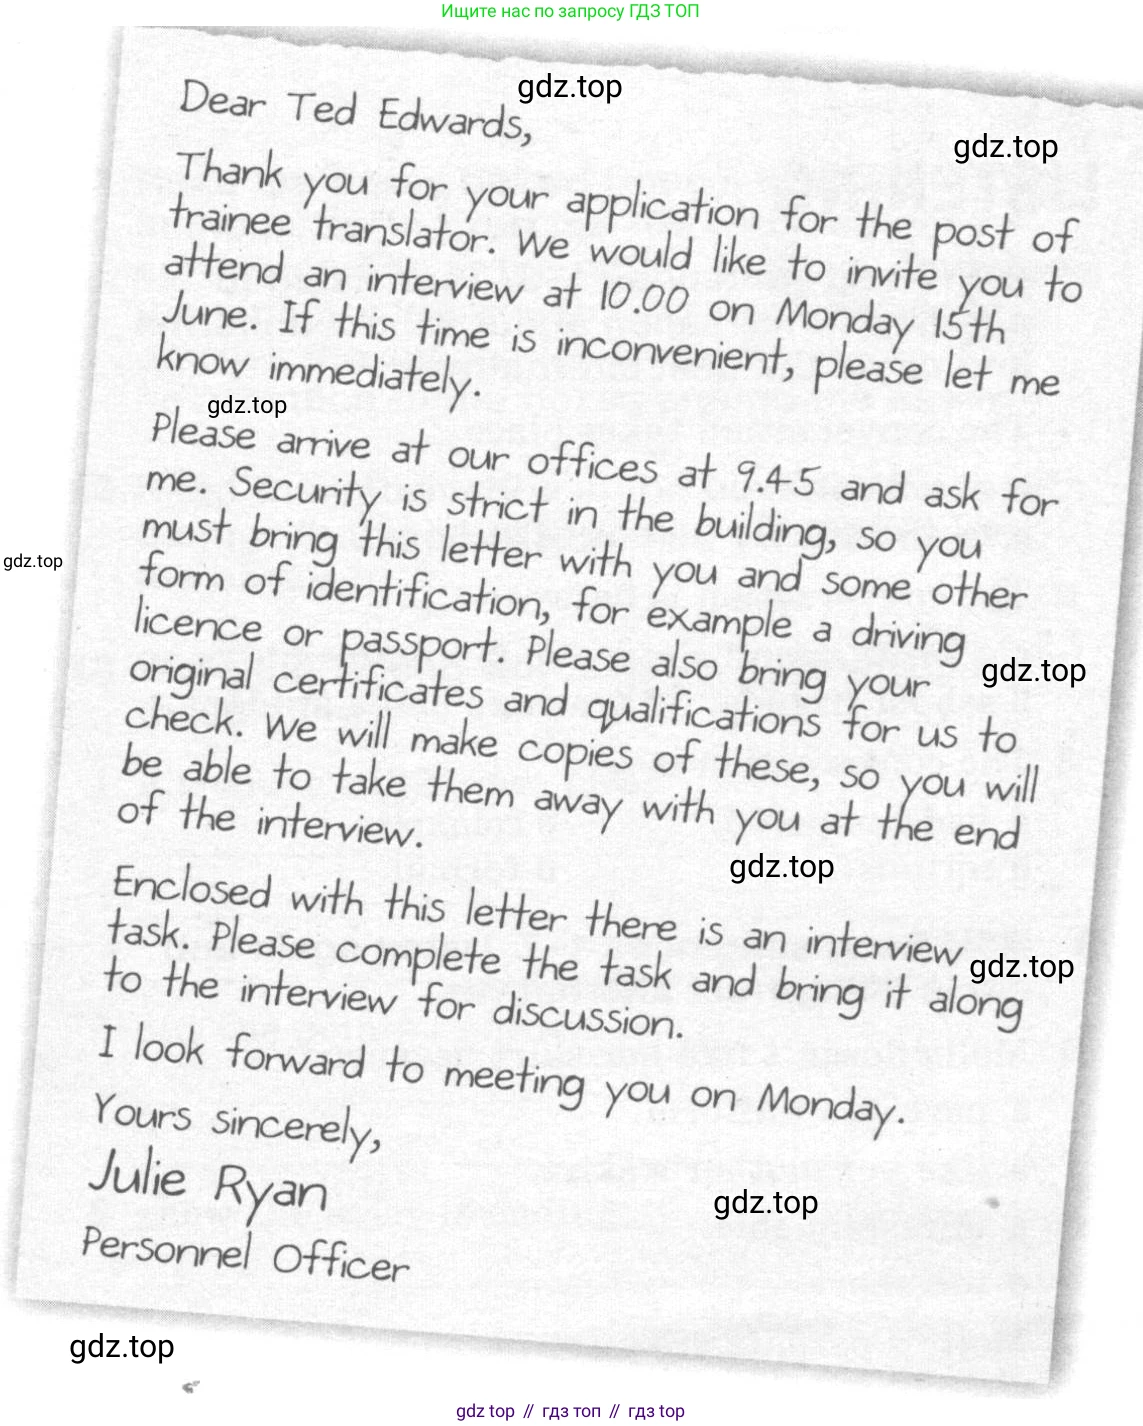 Ищите нас по запросу ГДЗ ТОП
gdz.top
Dear Ted Edwards,
gdz.top
Thank you for your application for the post of
trainee translator. We would like to invite you to
attend an interview at 10.00 on Monday 15th
June. If this time is inconvenient, please let me
know immediately.
gdz.top
Please arrive at our offices at 9.45 and ask for
me. Security is strict in the building, so you
must bring this letter with you and some other
gdz.top
form of identification, for example a driving
licence or passport. Please also bring your
gdz.top
original certificates and qualifications for us to
check. We will make copies of these, so you will
be able to take them away with you at the end
of the interview.
gdz.top
Enclosed with this letter there is an interview
gdz.top
task. Please complete the task and bring it along
to the interview for discussion.
I look forward to meeting you on Monday.
Yours sincerely,
Julie Ryan
gdz.top
Personnel Officer
gdz.top
gdz top // гдз топ // гдз top